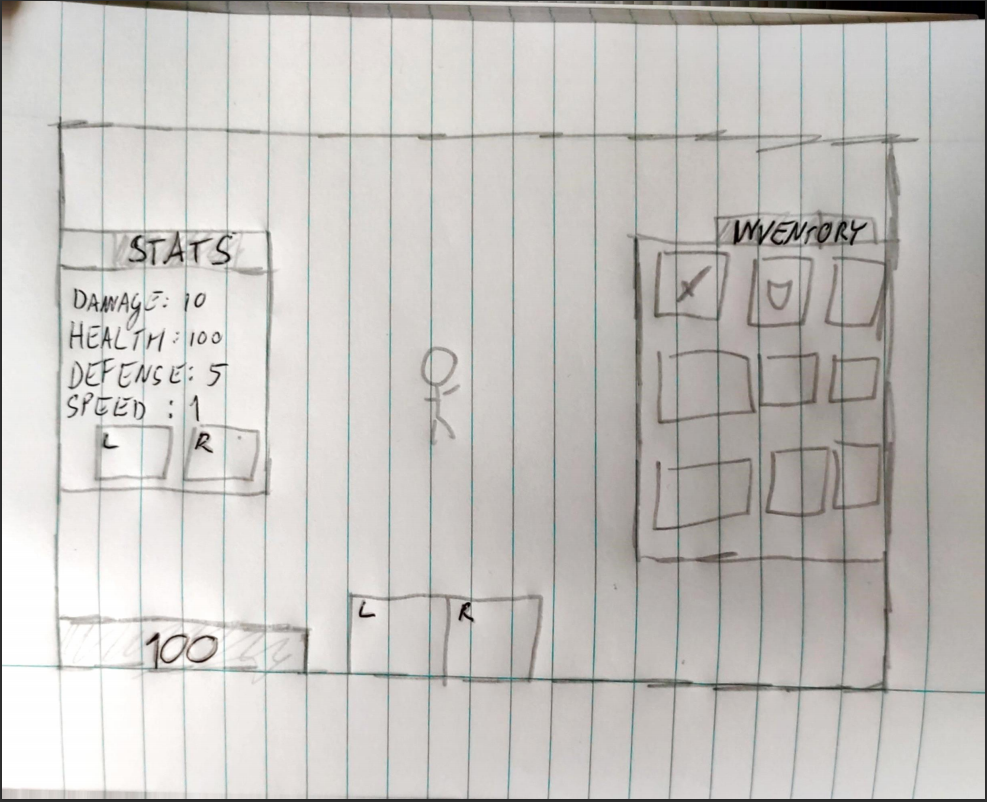 STATS
DAMAGE: 10
HEALTH: 100
DEFENSE: 5
SPEED : 1
L R
INVENTORY
100
L R